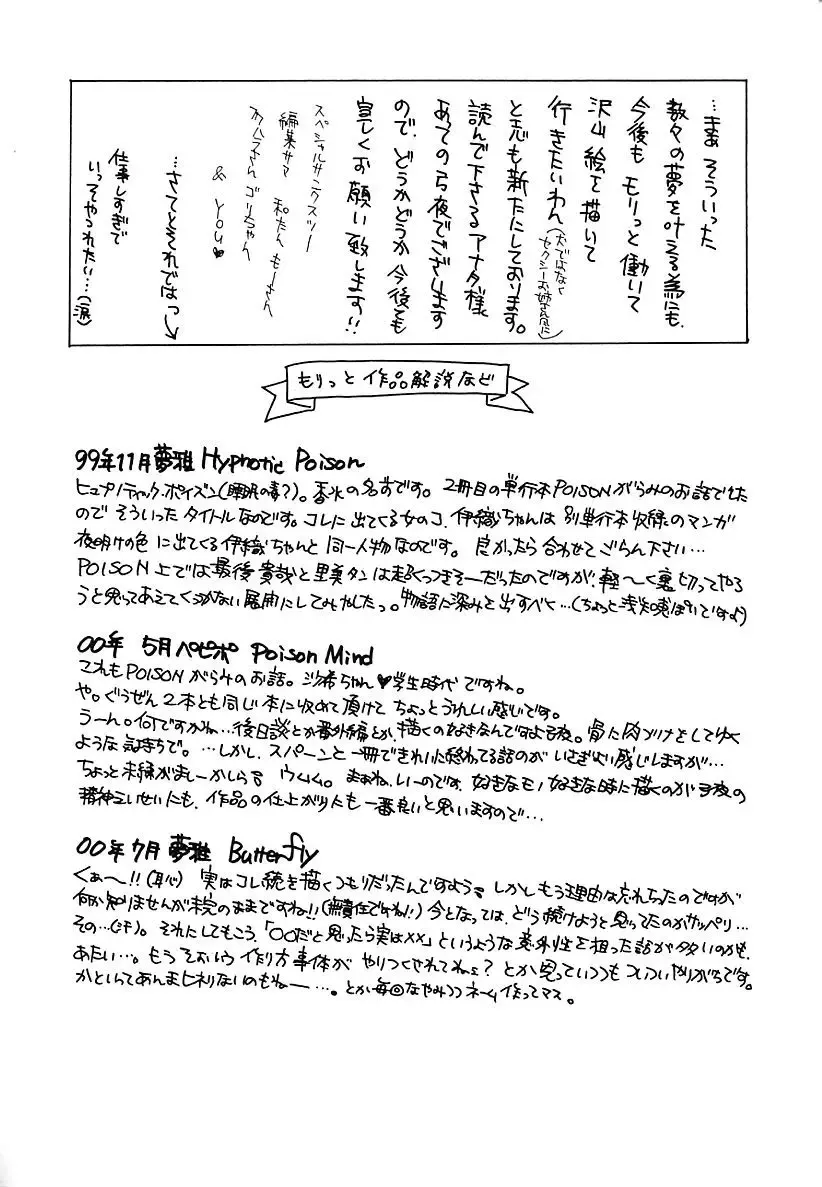 …まぁ そういった
数々の夢を叶える為にも、
今後も モリっと働いて
沢山 絵を描いて
行きたいわん(犬ではなく
セクシーお姉さん風に)
と志も新たにしております。
読んで下さるアナタ様
あっての弓夜でございます
ので、どうかどうか 今後とも
宜しくお願い致します!!
スペシャルサンクスツー
編集サマ 和たん もーさん
オムラさん ゴリちゃん
& You♥
…さてとそれではっ
仕事しすぎで
いつもやつれたい…(涙)
もりっと 作品解説など
99年11月夢雅 Hypnotic Poison
ヒュプノティック・ポイズン(睡眠の毒?)。香水の名前です。2冊目の単行本POISONがらみのお話でした
ので そういった タイトルなのです。コレに出てくる女のコ、伊織ちゃんは 別単行本収録のマンガ
夜明けの色 に出てくる伊織ちゃんと 同一人物なのです。 良かったら 合わせて ごらん下さい…
POISON上では最後 貴哉と里美タンは超くっつきそーだったのですが、軽〜く裏切ってやろ
うと思ってあえてくっつかない展開にしてみやしたっ。物語に深みを出すべく…(ちょっと浅知恵ぽいですよ)
00年 5月ペピポ Poison Mind
これもPOISONがらみのお話。沙希ちゃん♥学生時代 ですね。
や。ぐうぜん 2本とも同じ本に収めて頂けて ちょっとうれしい感じです。
うーん。何ですかね…後日談とか番外編とか、描くの好きなんですよ弓夜。骨に肉づけをしてゆく
ような気持ちで。…しかし、スパーンと 一冊できれいに終わってる話のが いさぎよい感じしますが…
ちょっと未練がましーかしら? ウムム。 まぁね、いーのです、好きなモノ好きな時に描くのが弓夜の
精神えいせいにも、作品の仕上がりにも一番良いと思いますので…
00年7月 夢雅 Butterfly
くぁ〜!!(恥) 実はコレ続きを描くつもりだったんですよう? しかしもう理由は忘れちったのですが
何か知りませんが未完のままですね!!(無責任ですね!) 今となっては、どう続けようと思ってたのかサッパリ…
その…(汗)。それにしてもこう、「○○だと思ったら実は××」というような意外性を狙った話が多いのかも、
あたい…。もうそおいう 作り方事体が やりつくされてねぇ? とか思っていつつも ついついやりがちです。
かといってあんまヒネりないのもねー…。とか毎回なやみつつ ネーム作ってマス。